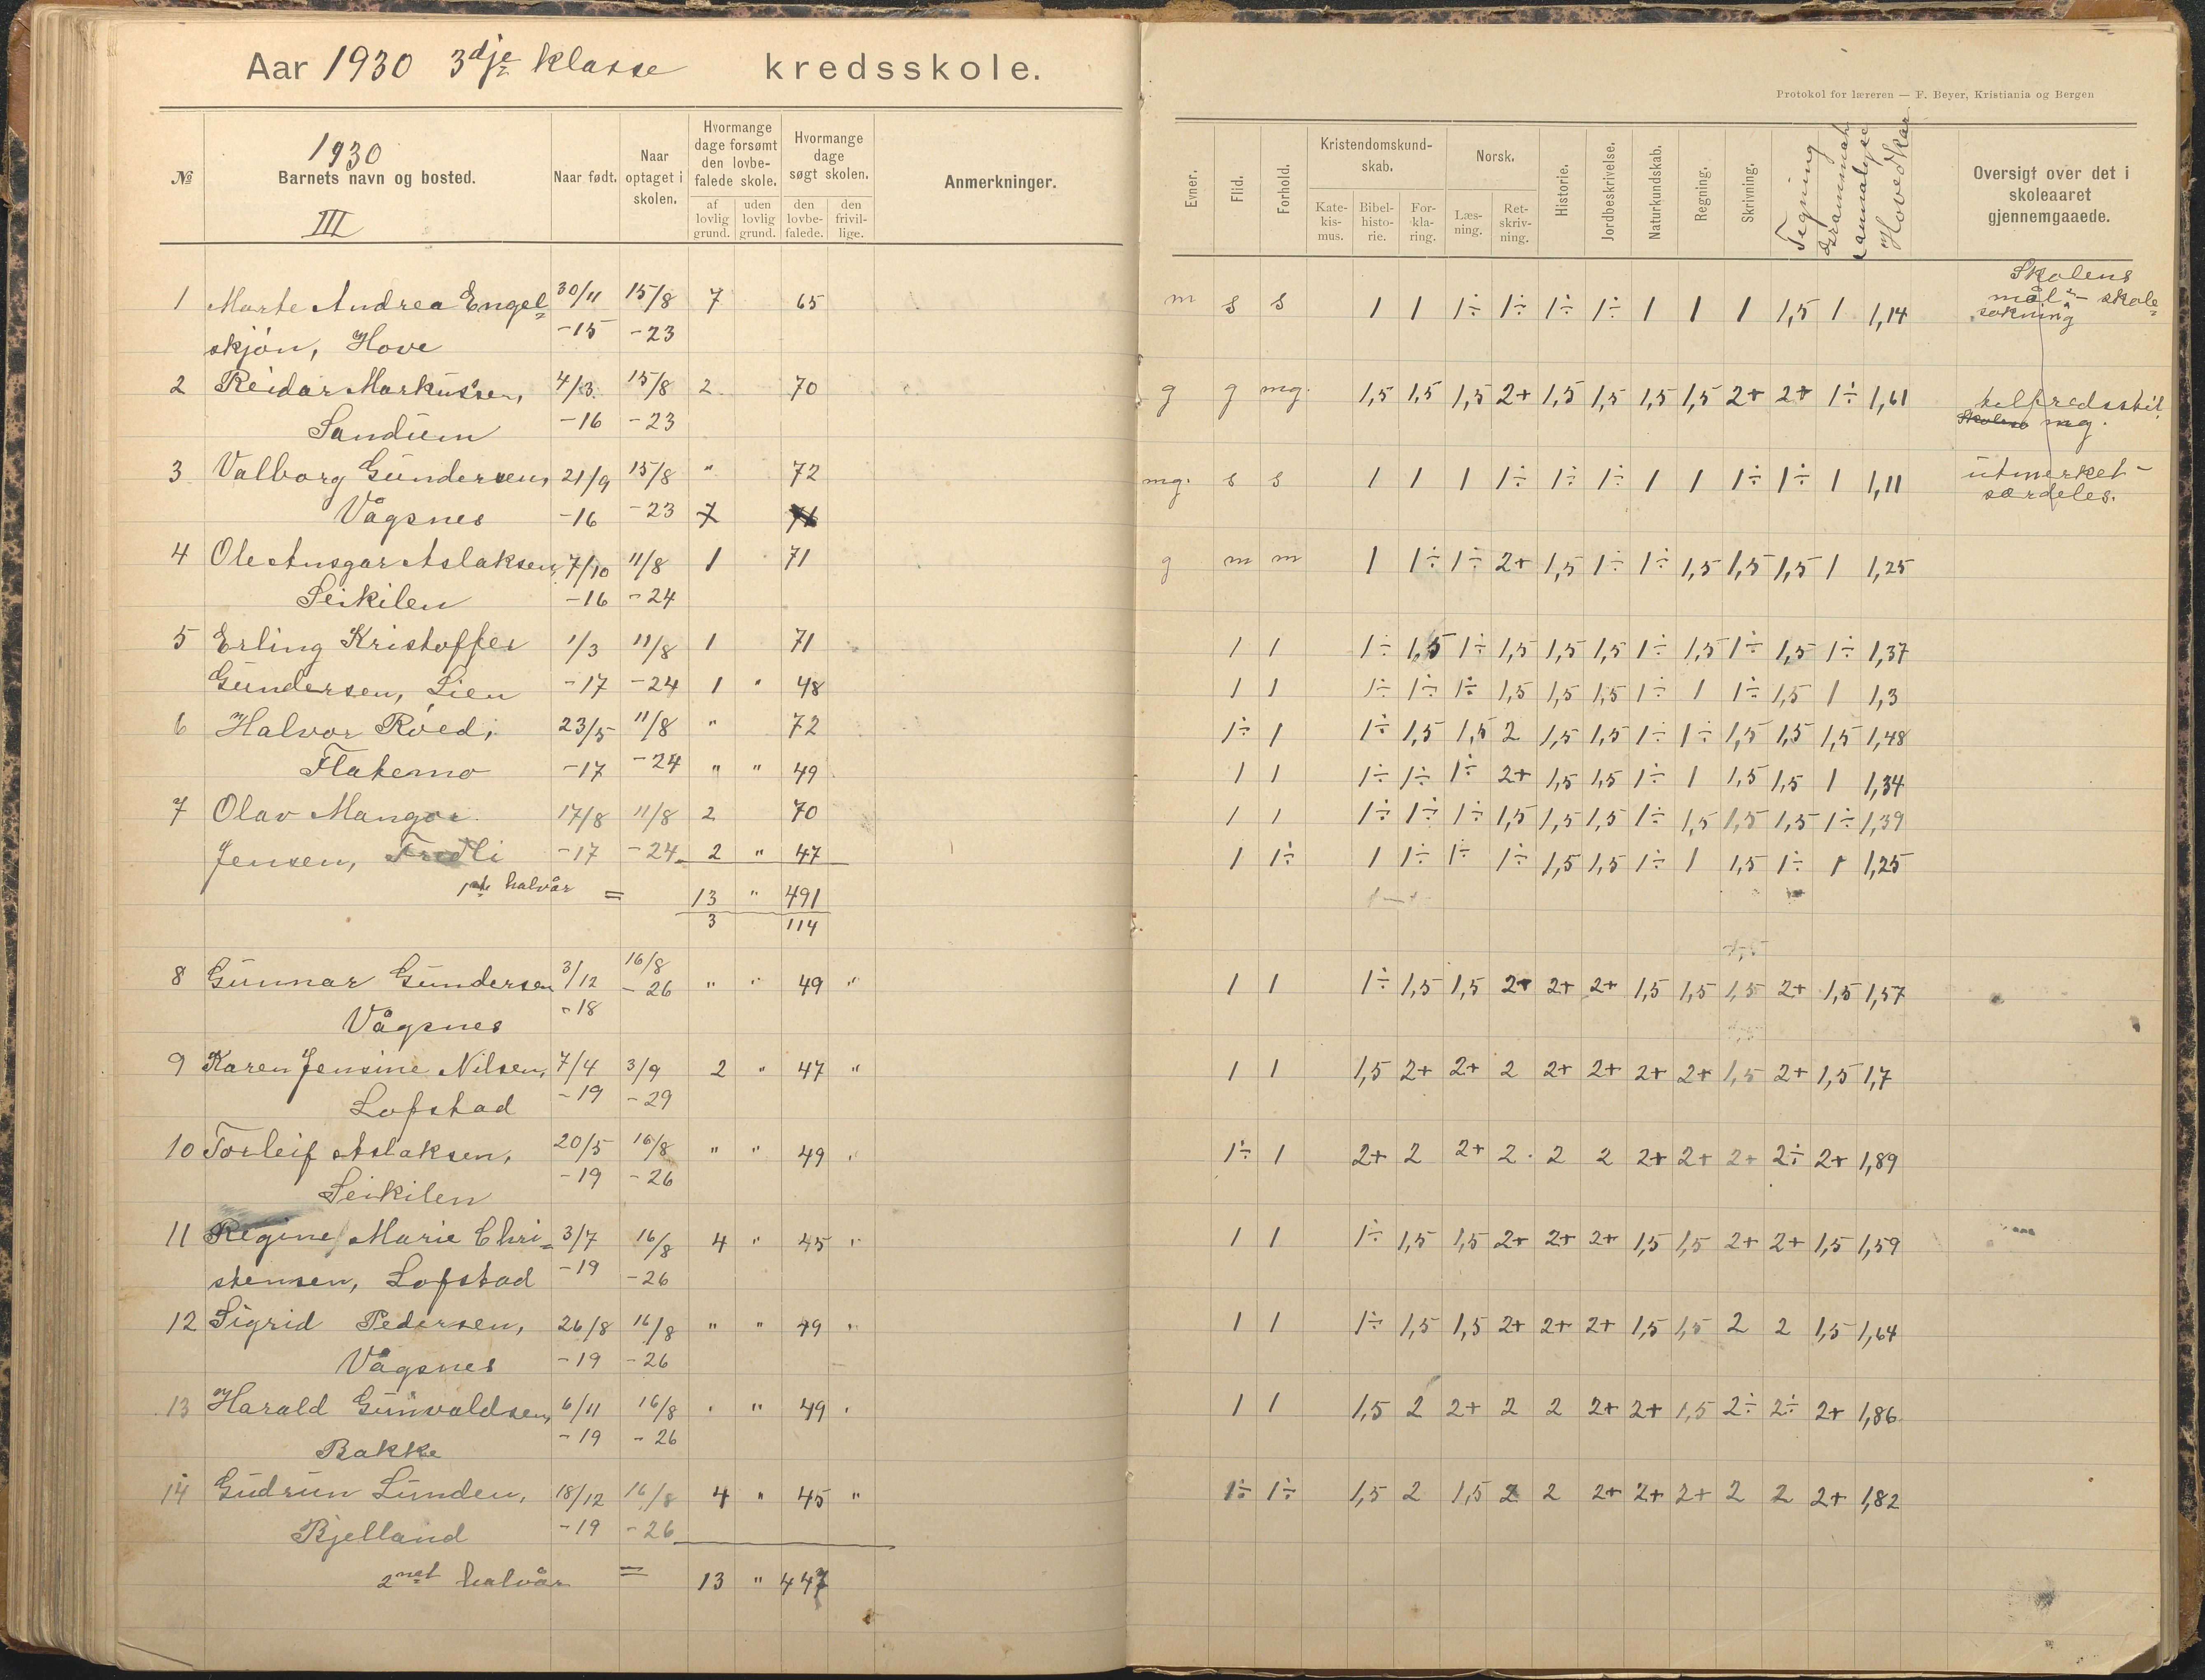 Aar 1930 3dje klasse kredsskole.
№
1930
Barnets navn og bosted.
III
Naar født.
Naar optaget i skolen.
Hvormange dage forsømt den lovbefalede skole.
af lovlig grund.
uden lovlig grund.
Hvormange dage søgt skolen.
den lovbefalede.
den frivillige.
Anmerkninger.
1 Marte Andrea Engel= 30/11 15/8 7 65
skjön, Hove -15 -23
2 Reidar Markussen, 4/3. 15/8 2 70
Sandum -16 -23
3 Valborg Gundersen, 21/9 15/8 " 72
Vågsnes -16 -23 7 71
4 Ole Ansgar Aslaksen, 7/10 11/8 1 71
Seikilen -16 -24
5 Erling Kristoffer 1/3 11/8 1 71
Gundersen, Lien -17 -24 1 " 48
6 Halvor Röed, 23/5 11/8 " 72
Flatemo -17 -24 " " 49
7 Olav Mangor 17/8 11/8 2 70
Jensen, Fredli -17 -24 2 " 47
1ste halvår = 13 " 491
3 114
8 Gunnar Gundersen 3/12 16/8 " " 49 "
Vågsnes -18 -26
9 Karen Jensine Nilsen, 7/4 3/9 2 " 47 "
Lofstad -19 -29
10 Torleif Aslaksen, 20/5 16/8 " " 49 "
Seikilen -19 -26
11 Regine Marie Chri= 3/7 16/8 4 " 45 "
stensen, Lofstad -19 -26
12 Sigrid Pedersen, 26/8 16/8 " " 49 "
Vågsnes -19 -26
13 Harald Gunvaldsen, 6/11 16/8 " " 49 "
Bakke -19 -26
14 Gudrun Lunden, 18/12 16/8 4 " 45 "
Bjelland -19 -26
2net halvår = 13 " 447
Protokol for læreren — F. Beyer, Kristiania og Bergen
Evner.
Flid.
Forhold.
Kristendomskundskab.
Katekismus.
Bibelhistorie.
Forklaring.
Norsk.
Læsning.
Retskrivning.
Historie.
Jordbeskrivelse.
Naturkundskab.
Regning.
Skrivning.
Tegning
Hovedkar.
Oversigt over det i skoleaaret gjennemgaaede.
m s s 1 1 1÷ 1÷ 1÷ 1÷ 1 1 1 1,5 1 1,14
Skolens
mål - skole=
søkning
g g mg. 1,5 1,5 1,5 2+ 1,5 1,5 1,5 1,5 2+ 2+ 1÷ 1,61
tilfredsstil.
Skolens mg.
mg. s s 1 1 1 1÷ 1÷ 1÷ 1 1 1÷ 1÷ 1 1,11
utmerket -
særdeles.
g m m 1 1÷ 1÷ 2+ 1,5 1÷ 1÷ 1,5 1,5 1,5 1 1,25
1 1 1÷ 1,5 1÷ 1,5 1,5 1,5 1÷ 1,5 1÷ 1,5 1÷ 1,37
1 1 1÷ 1÷ 1÷ 1,5 1,5 1,5 1÷ 1 1÷ 1,5 1 1,3
1÷ 1 1÷ 1,5 1,5 2 1,5 1,5 1÷ 1÷ 1,5 1,5 1,5 1,48
1 1 1÷ 1÷ 1÷ 2+ 1,5 1,5 1÷ 1 1,5 1,5 1 1,34
1 1 1÷ 1÷ 1÷ 1,5 1,5 1,5 1÷ 1,5 1,5 1,5 1÷ 1,39
1 1÷ 1 1÷ 1÷ 1÷ 1,5 1,5 1÷ 1 1,5 1÷ 1 1,25
1 1 1÷ 1,5 1,5 2+ 2+ 2+ 1,5 1,5 1,5 2+ 1,5 1,57
1 1 1,5 2+ 2+ 2 2+ 2+ 2+ 2+ 1,5 2+ 1,5 1,7
1÷ 1 2+ 2 2+ 2 2 2 2+ 2+ 2+ 2÷ 2+ 1,89
1 1 1÷ 1,5 1,5 2+ 2+ 2+ 1,5 1,5 2+ 2+ 1,5 1,59
1 1 1÷ 1,5 1,5 2+ 2+ 2+ 1,5 1,5 2 2 1,5 1,64
1 1 1,5 2 2+ 2 2 2+ 2+ 1,5 2÷ 2÷ 2+ 1,86
1÷ 1÷ 1,5 2 1,5 2 2 2+ 2+ 2+ 2 2 2+ 1,82